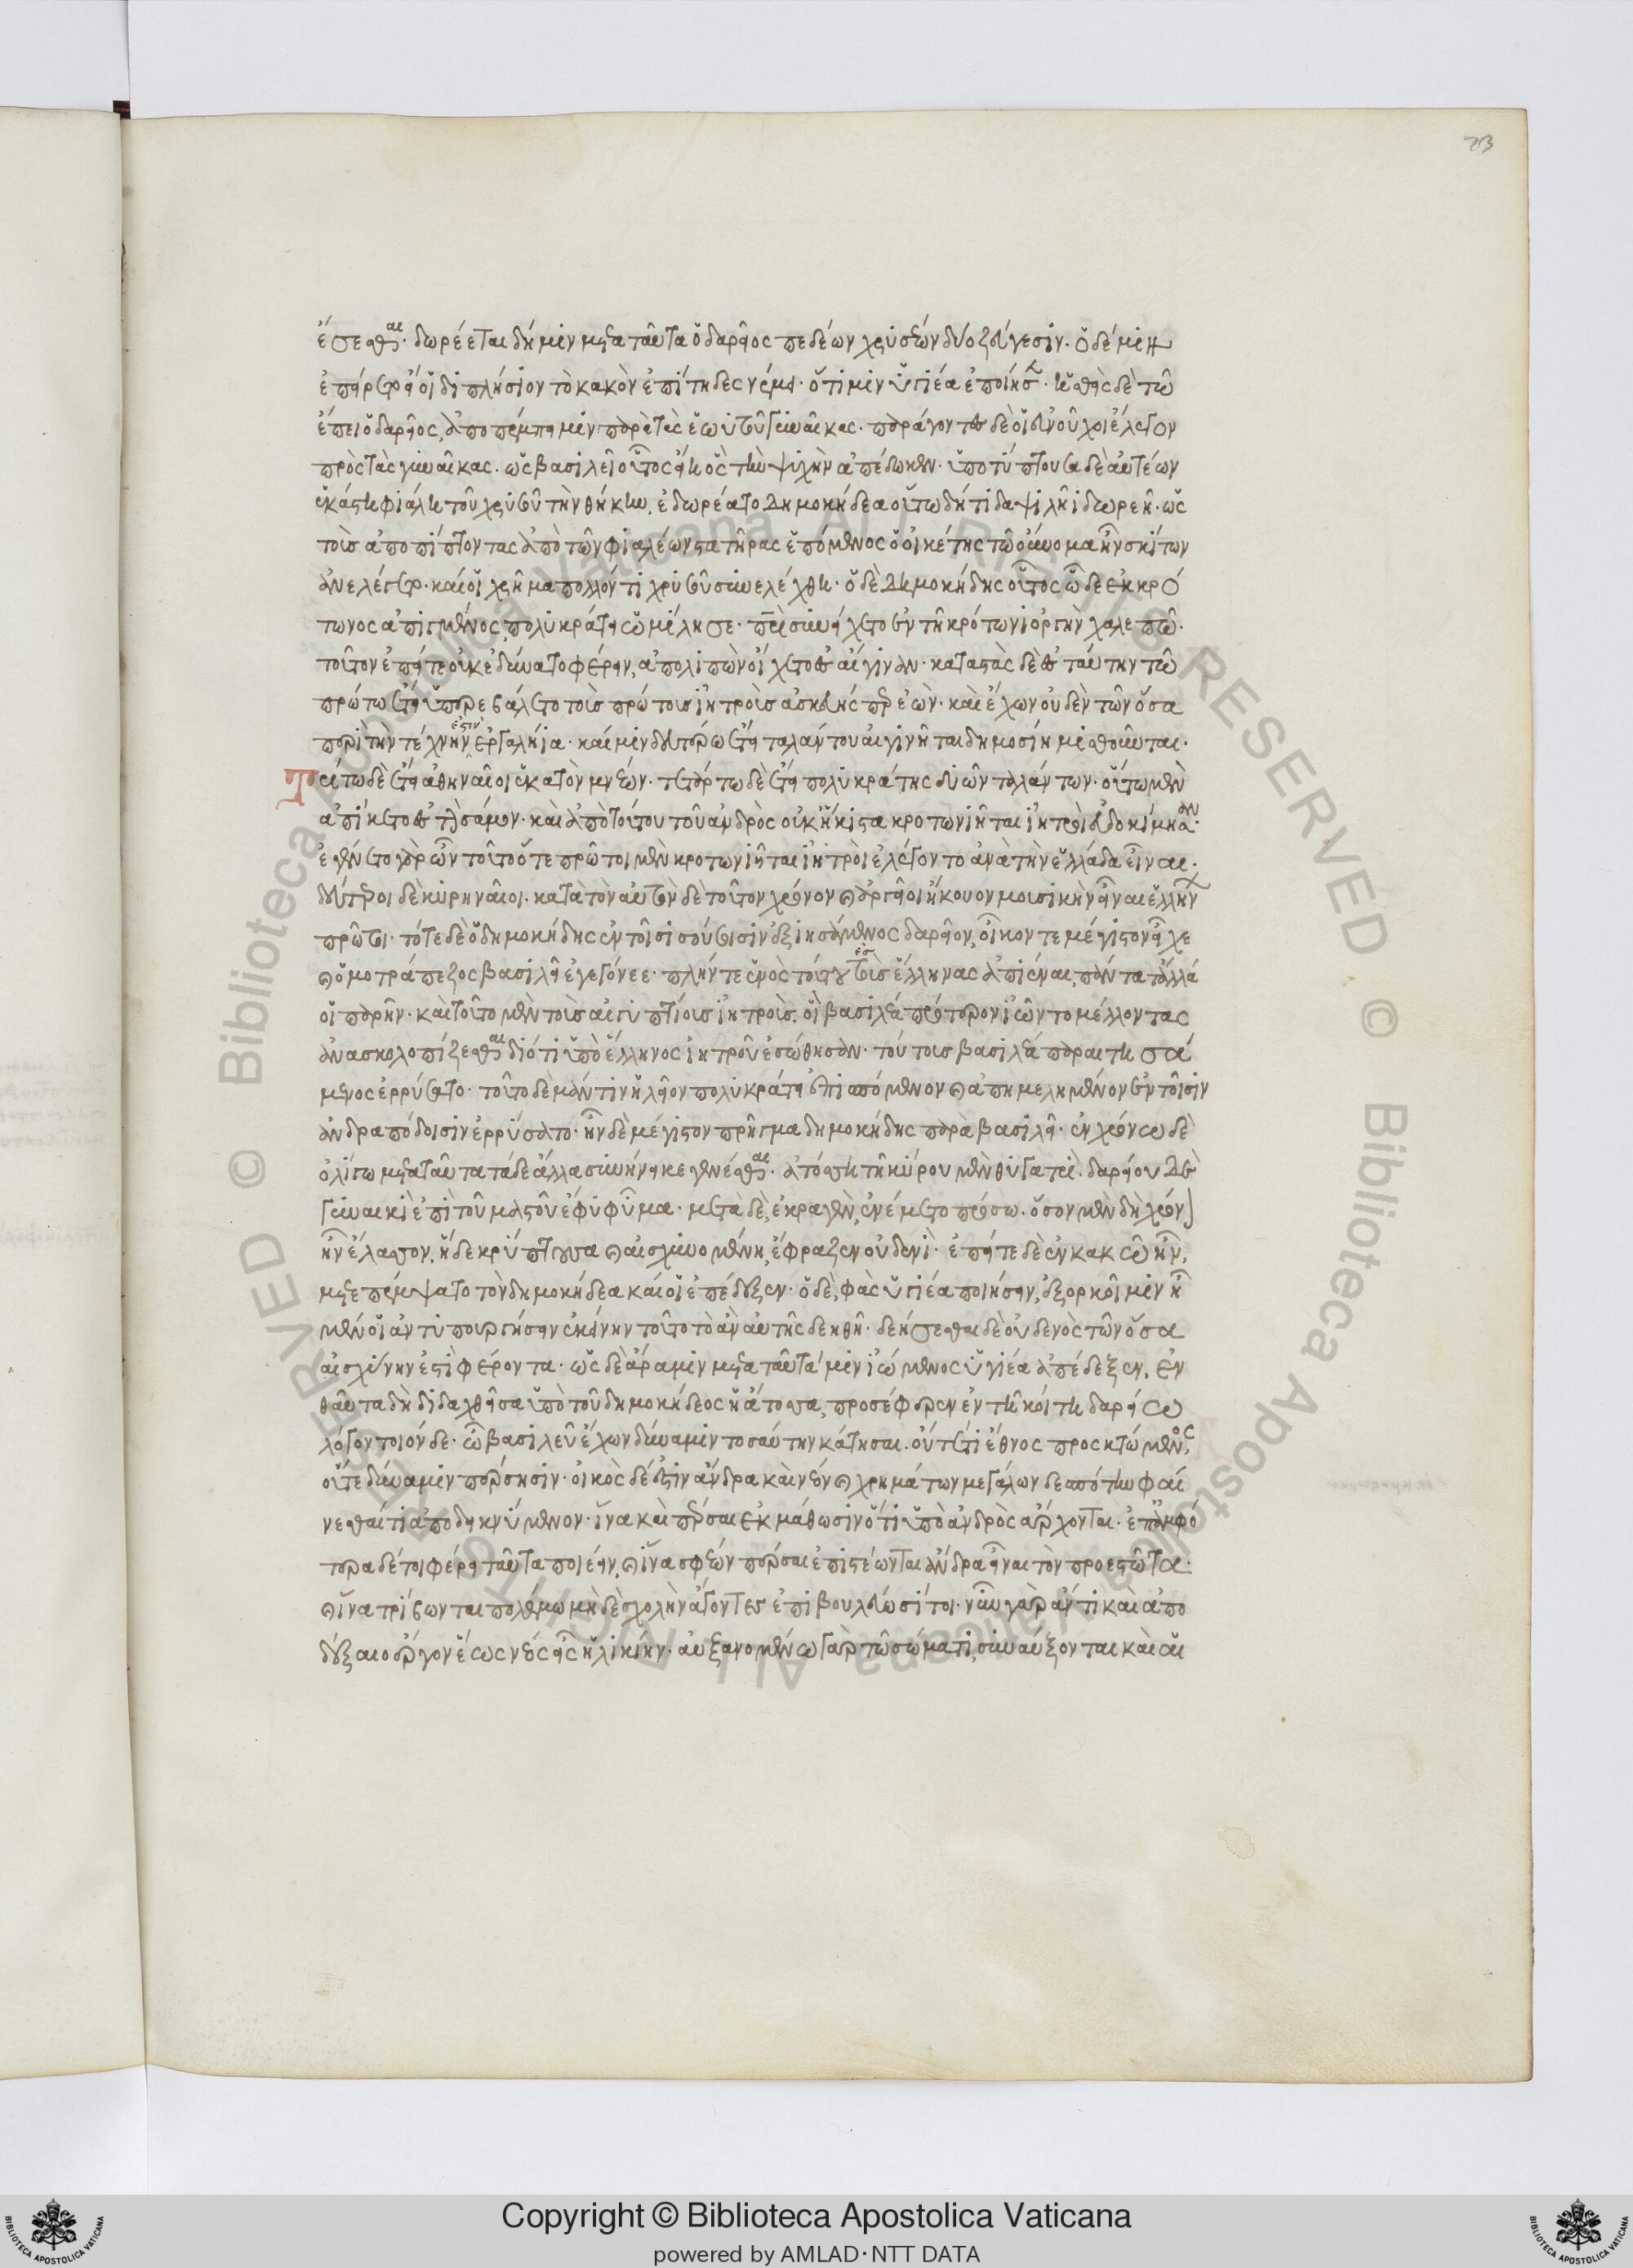 73
ἔσεσθαι· δωρέεται δή μιν μετὰ ταῦτα ὁ δαρεῖος πεδέων χρυσέων δύο ζεύγεσιν. ὁ δέ μιν
ἐπείρετο εἴ οἱ διπλήσιον τὸ κακὸν ἐπίτηδες νέμει· ὅτι μιν ὑγιέα ἐποίησε. ἡσθεὶς δὲ τῶ
ἔπει ὁ δαρεῖος, ἀποπέμπει μιν παρὰ τὰς ἑωυτοῦ γυναῖκας. παράγοντες δὲ οἱ εὐνοῦχοι ἔλεγον
πρὸς τὰς γυναῖκας. ὡς βασιλέι οὗτος εἴη ὃς τὴν ψυχὴν ἀπέδωκεν. ὑποτύπτουσα δὲ αὐτέων
ἑκάστη φιάλη τοῦ χρυσοῦ τὴν θήκην, ἐδωρέατο Δημοκήδεα οὕτω δή τι δαψιλῆι δωρεῆ· ὡς
τοὺς ἀποπίπτοντας ἀπὸ τῶν φιαλέων στατῆρας ἑπόμενος ὁ οἰκέτης τῶ οὔνομα ἦν σκίτων
ἀνελέγετο. καί οἱ χρῆμα πολλόν τι χρυσοῦ συνελέχθη. ὁ δὲ Δημοκήδης οὗτος ὧδε ἐκ κρό
τωνος ἀπιγμένος πολυκράτει ὡμίλησε· πατρὶ συνείχετο ἐν τῆ κρότωνι ὀργὴν χαλεπῶ.
τοῦτον ἐπείτε οὐκ ἐδύνατο φέρειν, ἀπολιπὼν οἴχετο ἐς αἴγιναν. καταστὰς δὲ ἐς ταύτην τῶ
πρώτω ἔτεϊ ὑπερεβάλετο τοὺς πρώτους ἰητροὺς ἀσκευής περ ἐὼν. καὶ ἔχων οὐδὲν τῶν ὅσα
περὶ τὴν τέχνην ἐστὶν ἐργαλήια. καί μιν δευτέρω ἔτεϊ ταλάντου αἰγινῆται δημοσίη μισθοῦνται.
Τρίτω δὲ ἔτεϊ ἀθηναῖοι ἑκατὸν μνέων. τετάρτω δὲ ἔτεϊ πολυκράτης δυῶν ταλάντων. οὕτω μὲν
ἀπίκετο ἐς τὴν σάμον. καὶ ἀπὸ τούτου τοῦ ἀνδρὸς οὐκ ἥκιστα κροτωνιῆται ἰητροὶ εὐδοκίμησαν.
ἐγένετο γὰρ ὦν τοῦτο ὅτε πρῶτοι μὲν κροτωνιῆται ἰητροὶ ἐλέγοντο ἀνὰ τὴν ἑλλάδα εἶναι.
δεύτεροι δὲ κυρηναῖοι. κατὰ τὸν αὐτὸν δὲ τοῦτον χρόνον καὶ ἀργεῖοι ἤκουον μουσικὴν εἶναι ἑλλήνων
πρῶτοι. τότε δὲ ὁ δημοκήδης ἐν τοῖσι σούσοισιν ἐξιησάμενος δαρεῖον, οἶκόν τε μέγιστον εἶχε
καὶ ὁμοτράπεζος βασιλεῖ ἐγεγόνεε. πλήν τε ἑνὸς τοῦ ἐς τοὺς ἕλληνας ἀπιέναι, πάντα τἄλλά
οἱ παρῆν. καὶ τοῦτο μὲν τοὺς αἰγυπτίους ἰητροὺς. οἳ βασιλέα πρότερον ἰῶντο μέλλοντας
ἀνασκολοπίζεσθαι διότι ὑπὸ ἕλληνος ἰητροῦ ἑσώθησαν. τούτους βασιλέα παραιτησά
μενος ἐρρύσατο. τοῦτο δὲ μάντιν ἠλεῖον πολυκράτει ἐπισπόμενον καὶ ἀπημελημένον ἐν τοῖσιν
ἀνδραπόδοισιν ἐρρύσατο. ἦν δὲ μέγιστον πρῆγμα δημοκήδης παρὰ βασιλεῖ. ἐν χρόνω δὲ
ὀλίγω μετὰ ταῦτα τάδε ἄλλα συνήνεικε γενέσθαι. ἀτόσση τῆ κύρου μὲν θυγατρὶ. δαρείου δὲ
γυναικὶ ἐπὶ τοῦ μαστοῦ ἔφυ φῦμα. μετὰ δὲ, ἐκραγὲν, ἐνέμετο πρόσω. ὅσον μὲν δὴ χρόνον
ἦν ἔλασσον, ἡ δὲ κρύπτουσα καὶ αἰσχυνομένη, ἔφραζεν οὐδενὶ. ἐπείτε δὲ ἐν κακῶ ἦν,
μετεπέμψατο τὸν δημοκήδεα καί οἱ ἐπέδειξεν. ὁ δὲ, φὰς ὑγιέα ποιήσειν, ἐξορκοῖ μιν ἦ
μέν οἱ ἀντυπουργήσειν ἐκείνην τοῦτο τὸ ἂν αὐτῆς δεηθῆ. δεήσεσθαι δὲ οὐδενὸς τῶν ὅσα
αἰσχύνην ἐστὶ φέροντα. ὡς δὲ ἄρα μιν μετὰ ταῦτά μιν ἰώμενος ὑγιέα ἀπέδεξεν. ἐν
θαῦτα δὴ διδαχθεῖσα ὑπὸ τοῦ δημοκήδεος ἡ ἄτοσσα, προσέφερεν ἐν τῆ κοίτη δαρείω
λόγον τοιόνδε. ὦ βασιλεῦ ἔχων δύναμιν τοσαύτην κάτησαι. οὔτέ τι ἔθνος προσκτώμενος,
οὔτε δύναμιν πέρσησιν. οἰκὸς δέ ἐστιν ἄνδρα καὶ νέον καὶ χρημάτων μεγάλων δεσπότην φαί
νεσθαί τι ἀποδεικνύμενον. ἵνα καὶ πέρσαι ἐκμάθωσιν ὅτι ὑπὸ ἀνδρὸς ἄρχονται. ἐπ᾽ ἀμφό
τερα δέ τοι φέρει ταῦτα ποιέειν, καὶ ἵνα σφέων πέρσαι ἐπιστέωνται ἄνδρα εἶναι τὸν προεστῶτα.
καὶ ἵνα τρίβωνται πολέμω μὴ δὲ σχολὴν ἄγοντες ἐπιβουλεύωσί τοι. νῦν γὰρ ἄν τι καὶ ἀπο
δέξαιο ἔργον ἕως νέος εἶς ἡλικίην. αὐξανομένω γὰρ τῶ σώματι, συναύξονται καὶ αἱ
Copyright © Biblioteca Apostolica Vaticana
powered by AMLAD·NTT DATA